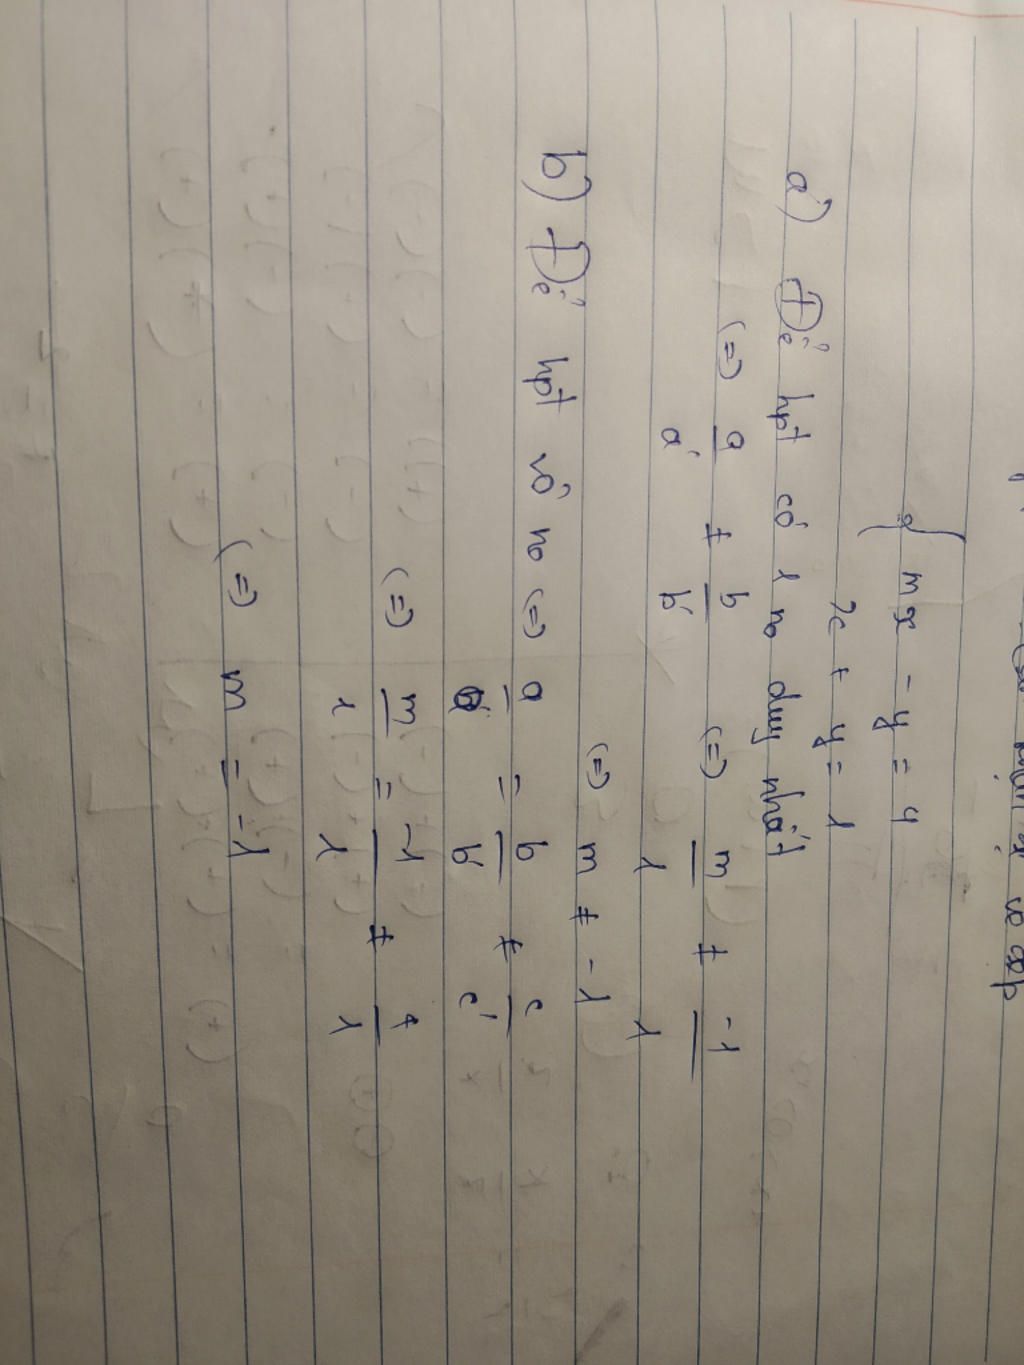 mx - y = 4
x + y = 1
a) Để hpt có 1 no duy nhất
(=) a/a' ≠ b/b' (=) m/1 ≠ -1/1
(=) m ≠ -1
b) Để hpt vô no (=) a/a' = b/b' ≠ c/c'
(=) m/1 = -1/1 ≠ 4/1
(=) m = -1